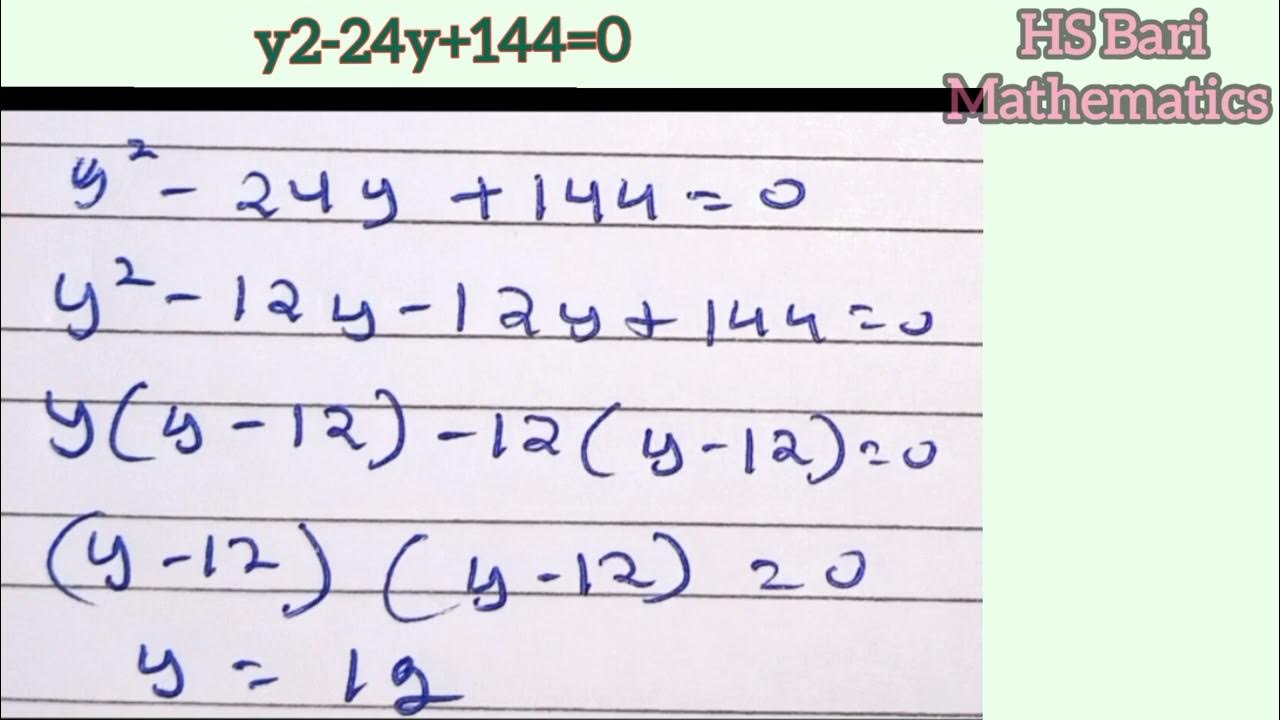 y2-24y+144=0
HS Bari
Mathematics
y² - 24y + 144 = 0
y² - 12y - 12y + 144 = 0
y(y - 12) - 12(y - 12) = 0
(y - 12) (y - 12) = 0
y = 12